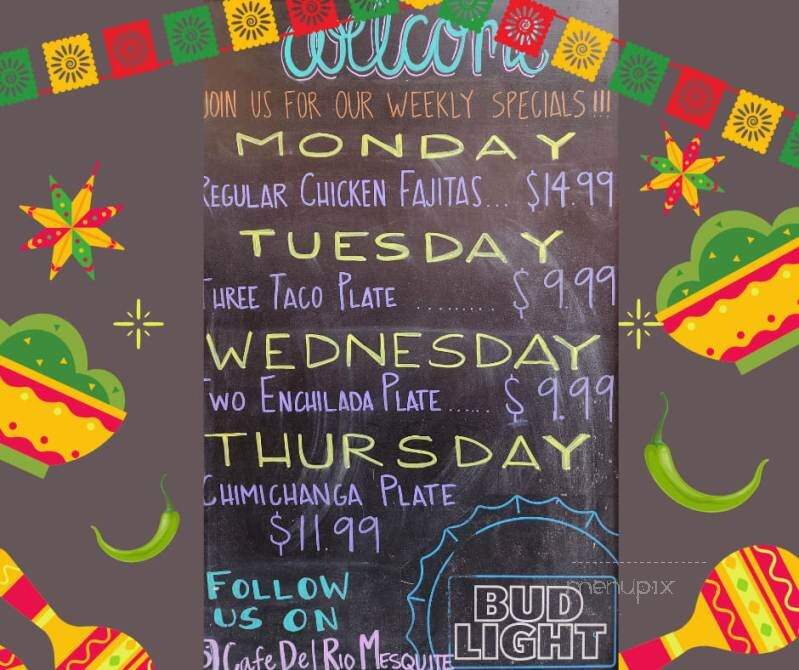 Welcome
JOIN US FOR OUR WEEKLY SPECIALS!!!
MONDAY
REGULAR CHICKEN FAJITAS... $14.99
TUESDAY
THREE TACO PLATE ......... $9.99
WEDNESDAY
TWO ENCHILADA PLATE...... $9.99
THURSDAY
CHIMICHANGA PLATE
$11.99
FOLLOW
US ON
Cafe Del Rio MESQUITE
BUD
LIGHT
menupix